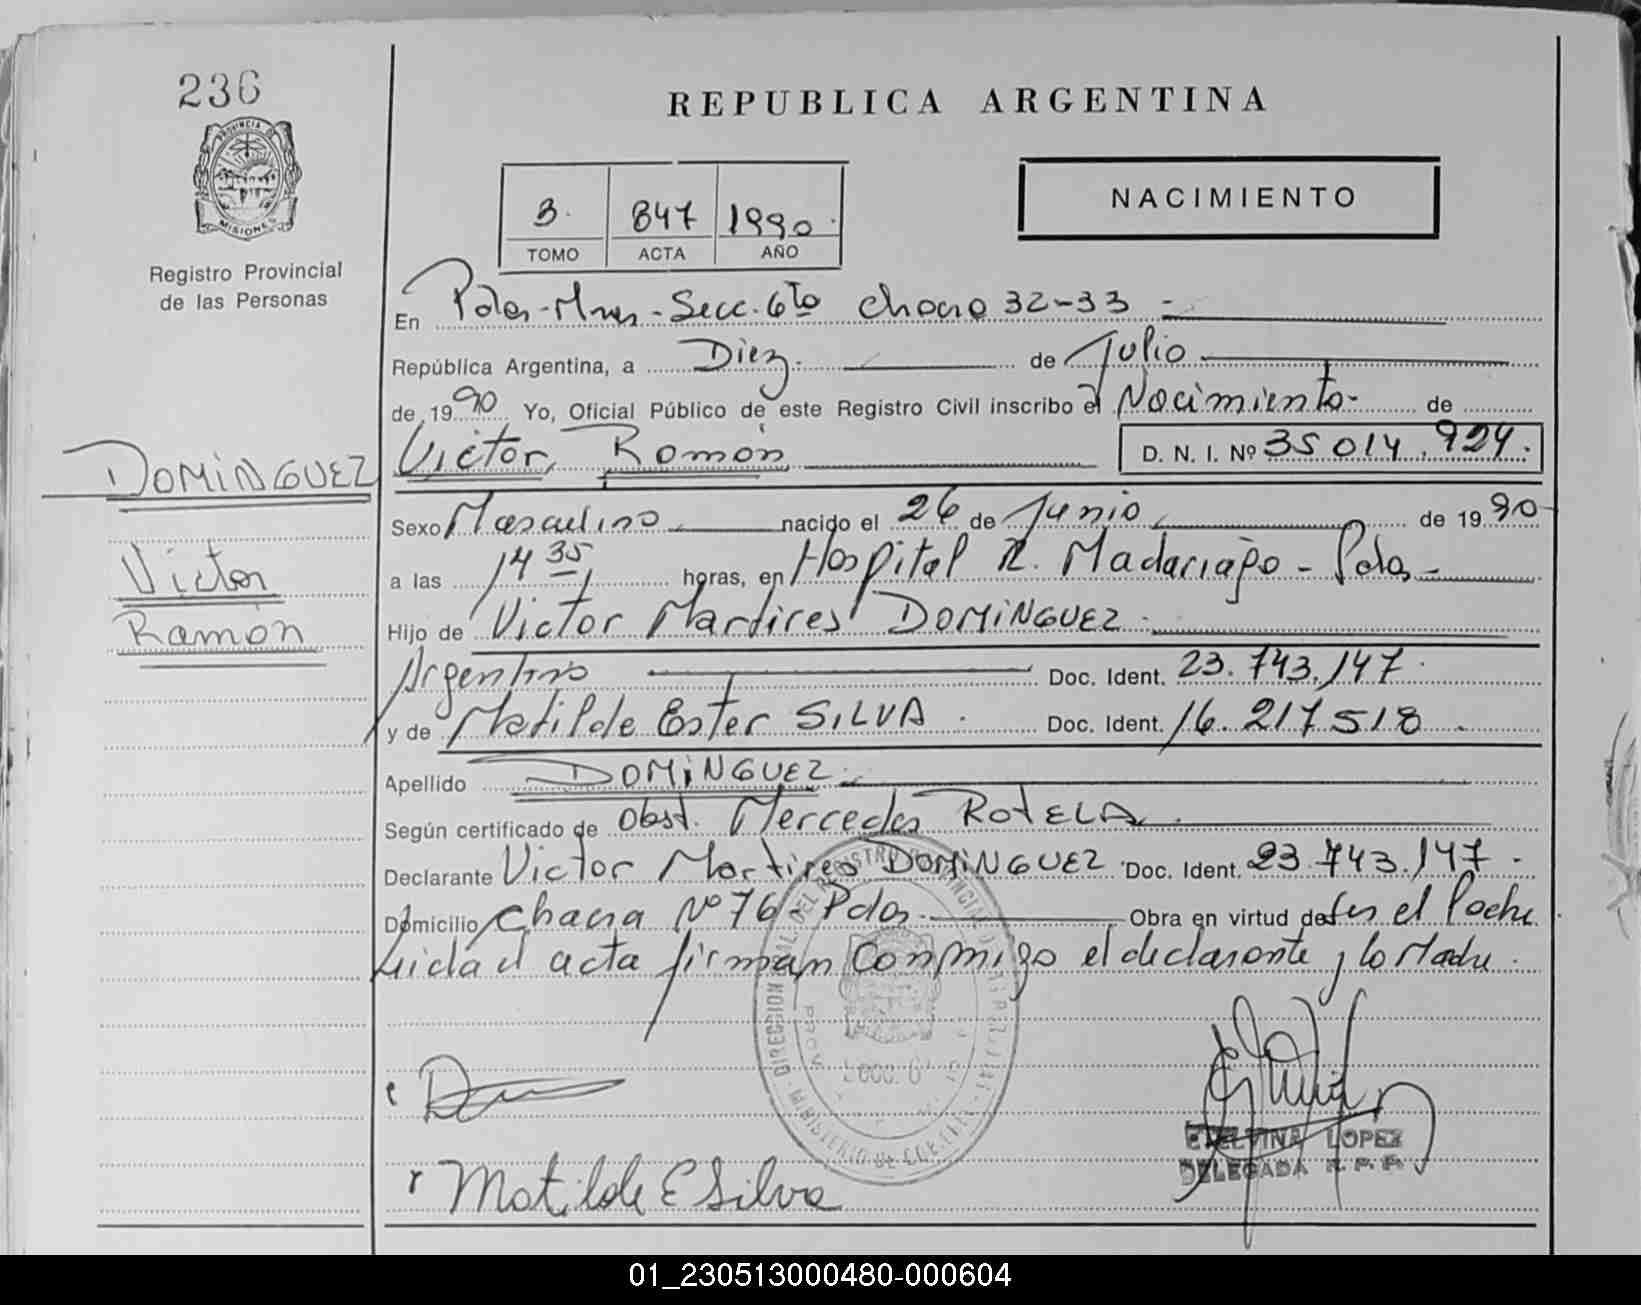 236
PROVINCIA DE
MISIONES
Registro Provincial
de las Personas
DOMINGUEZ
Victor
Ramón
REPUBLICA ARGENTINA
3. 847 1990.
TOMO ACTA AÑO
NACIMIENTO
En Pdas-Mnes-Secc. 6ta chacra 32-33 -
República Argentina, a Diez. de Julio
de 1990 Yo, Oficial Público de este Registro Civil inscribo el Nacimiento- de
Victor, Ramón D. N. I. Nº 35 014.924.
Sexo Masculino nacido el 26 de Junio de 1990
a las 14 35 horas, en Hospital R. Madariaga - Pdas -
Hijo de Victor Martires DOMINGUEZ
Argentino Doc. Ident. 23.743.147.
y de Matilde Ester SILVA . Doc. Ident. 16.217518 .
Apellido DOMINGUEZ
Según certificado de Obst. Mercedes ROTELA .
Declarante Victor Martires DOMINGUEZ Doc. Ident. 23.743.147.
Domicilio Chacra Nº 76 - Pdas. Obra en virtud de ser el Padre
Leida el acta firman conmigo el declarante y la Madre.
DIRECCION DEL REGISTRO PROVINCIAL DE LAS
MINISTERIO DE
Matilde E Silva
LOPEZ
DELEGADA R. P. P.
01_230513000480-000604